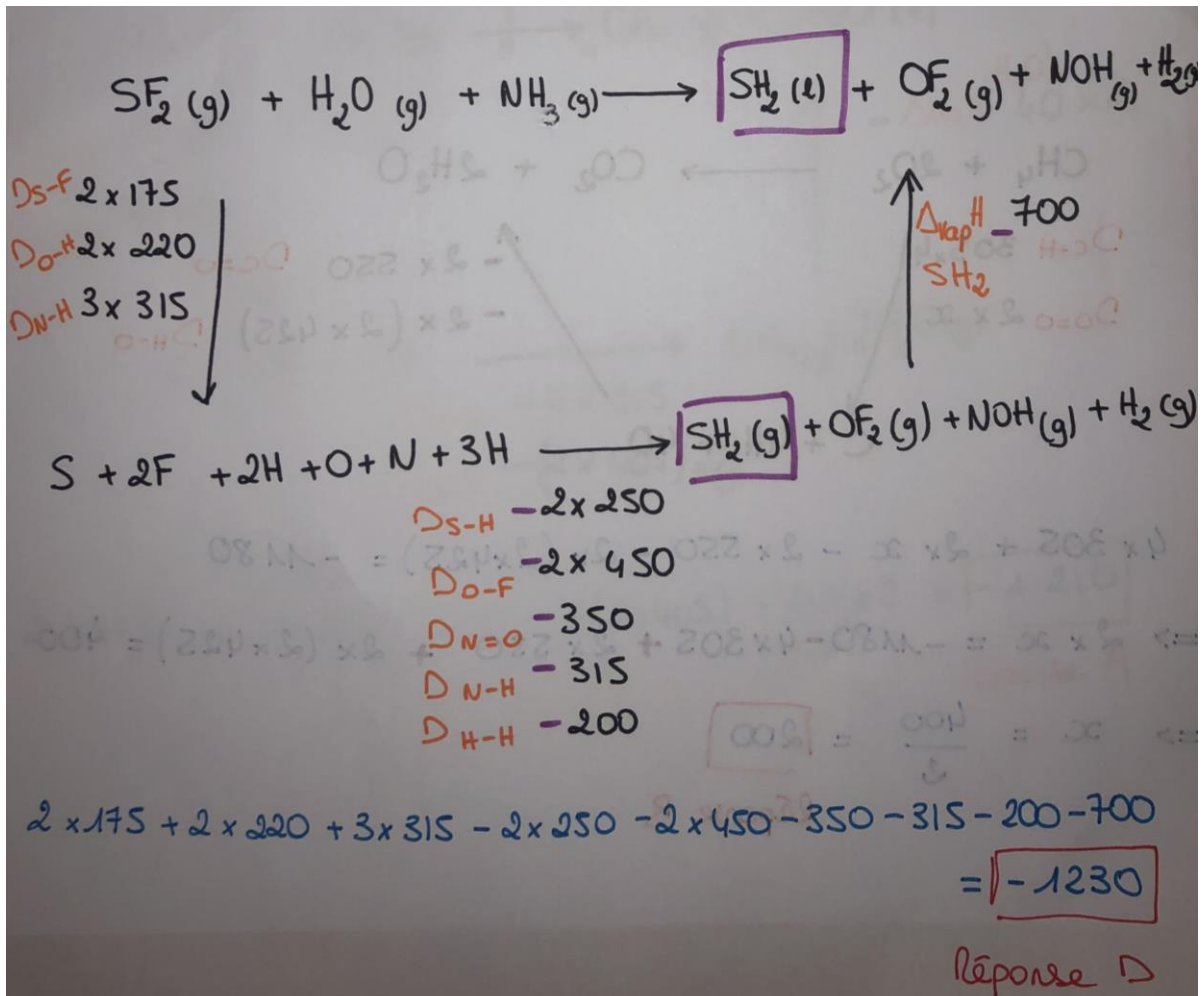 SF₂ (g) + H₂O (g) + NH₃ (g) ⟶ SH₂ (l) + OF₂ (g) + NOH (g) + H₂(g)
CH₄ + 2O₂ ⟶ CO₂ + 2H₂O
D_S-F 2 x 175
D_O-H 2 x 220
D_N-H 3 x 315
Δvap H - 700
SH₂
- 2 x 220
- 2 x (2 x 425)
S + 2F + 2H + O + N + 3H ⟶ SH₂ (g) + OF₂ (g) + NOH (g) + H₂ (g)
D_S-H - 2 x 250
D_O-F - 2 x 450
D_N=O - 350
D_N-H - 315
D_H-H - 200
2 x 175 + 2 x 220 + 3 x 315 - 2 x 250 - 2 x 450 - 350 - 315 - 200 - 700
= - 1230
Réponse D